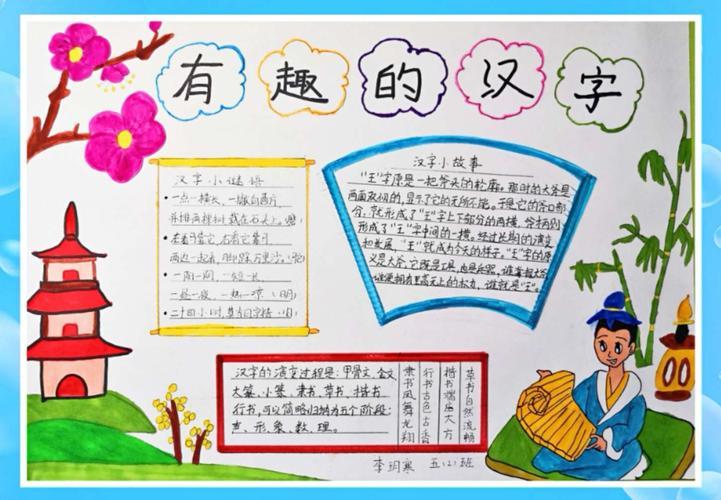 有趣的汉字
汉字小谜语
一点一横长，一撇向西片，
二十四小时
汉字小故事
"王"字原是一把斧头的轮廓。那时的大斧是
两面双刃的，显示了它的无所不能。于是它的斧口部
分，就形成了"王"字上下部分的两横，斧柄则
形成了"王"字中间的一横。经过长期的演变
和发展，"王"就成为今天的样子。"王"字的原
义是大斧，它既是工具，也是兵器，谁掌握大斧
谁便拥有至高无上的权力，谁就是"王"。
汉字的演变过程是：甲骨文、金文
大篆、小篆、隶书、草书、楷书、
行书，可以简略归纳为五个阶段：
声、形、象、数、理。
隶书风舞龙翔
行书古色古香
楷书端庄大方
草书自然流畅
李玥寒 五(2)班